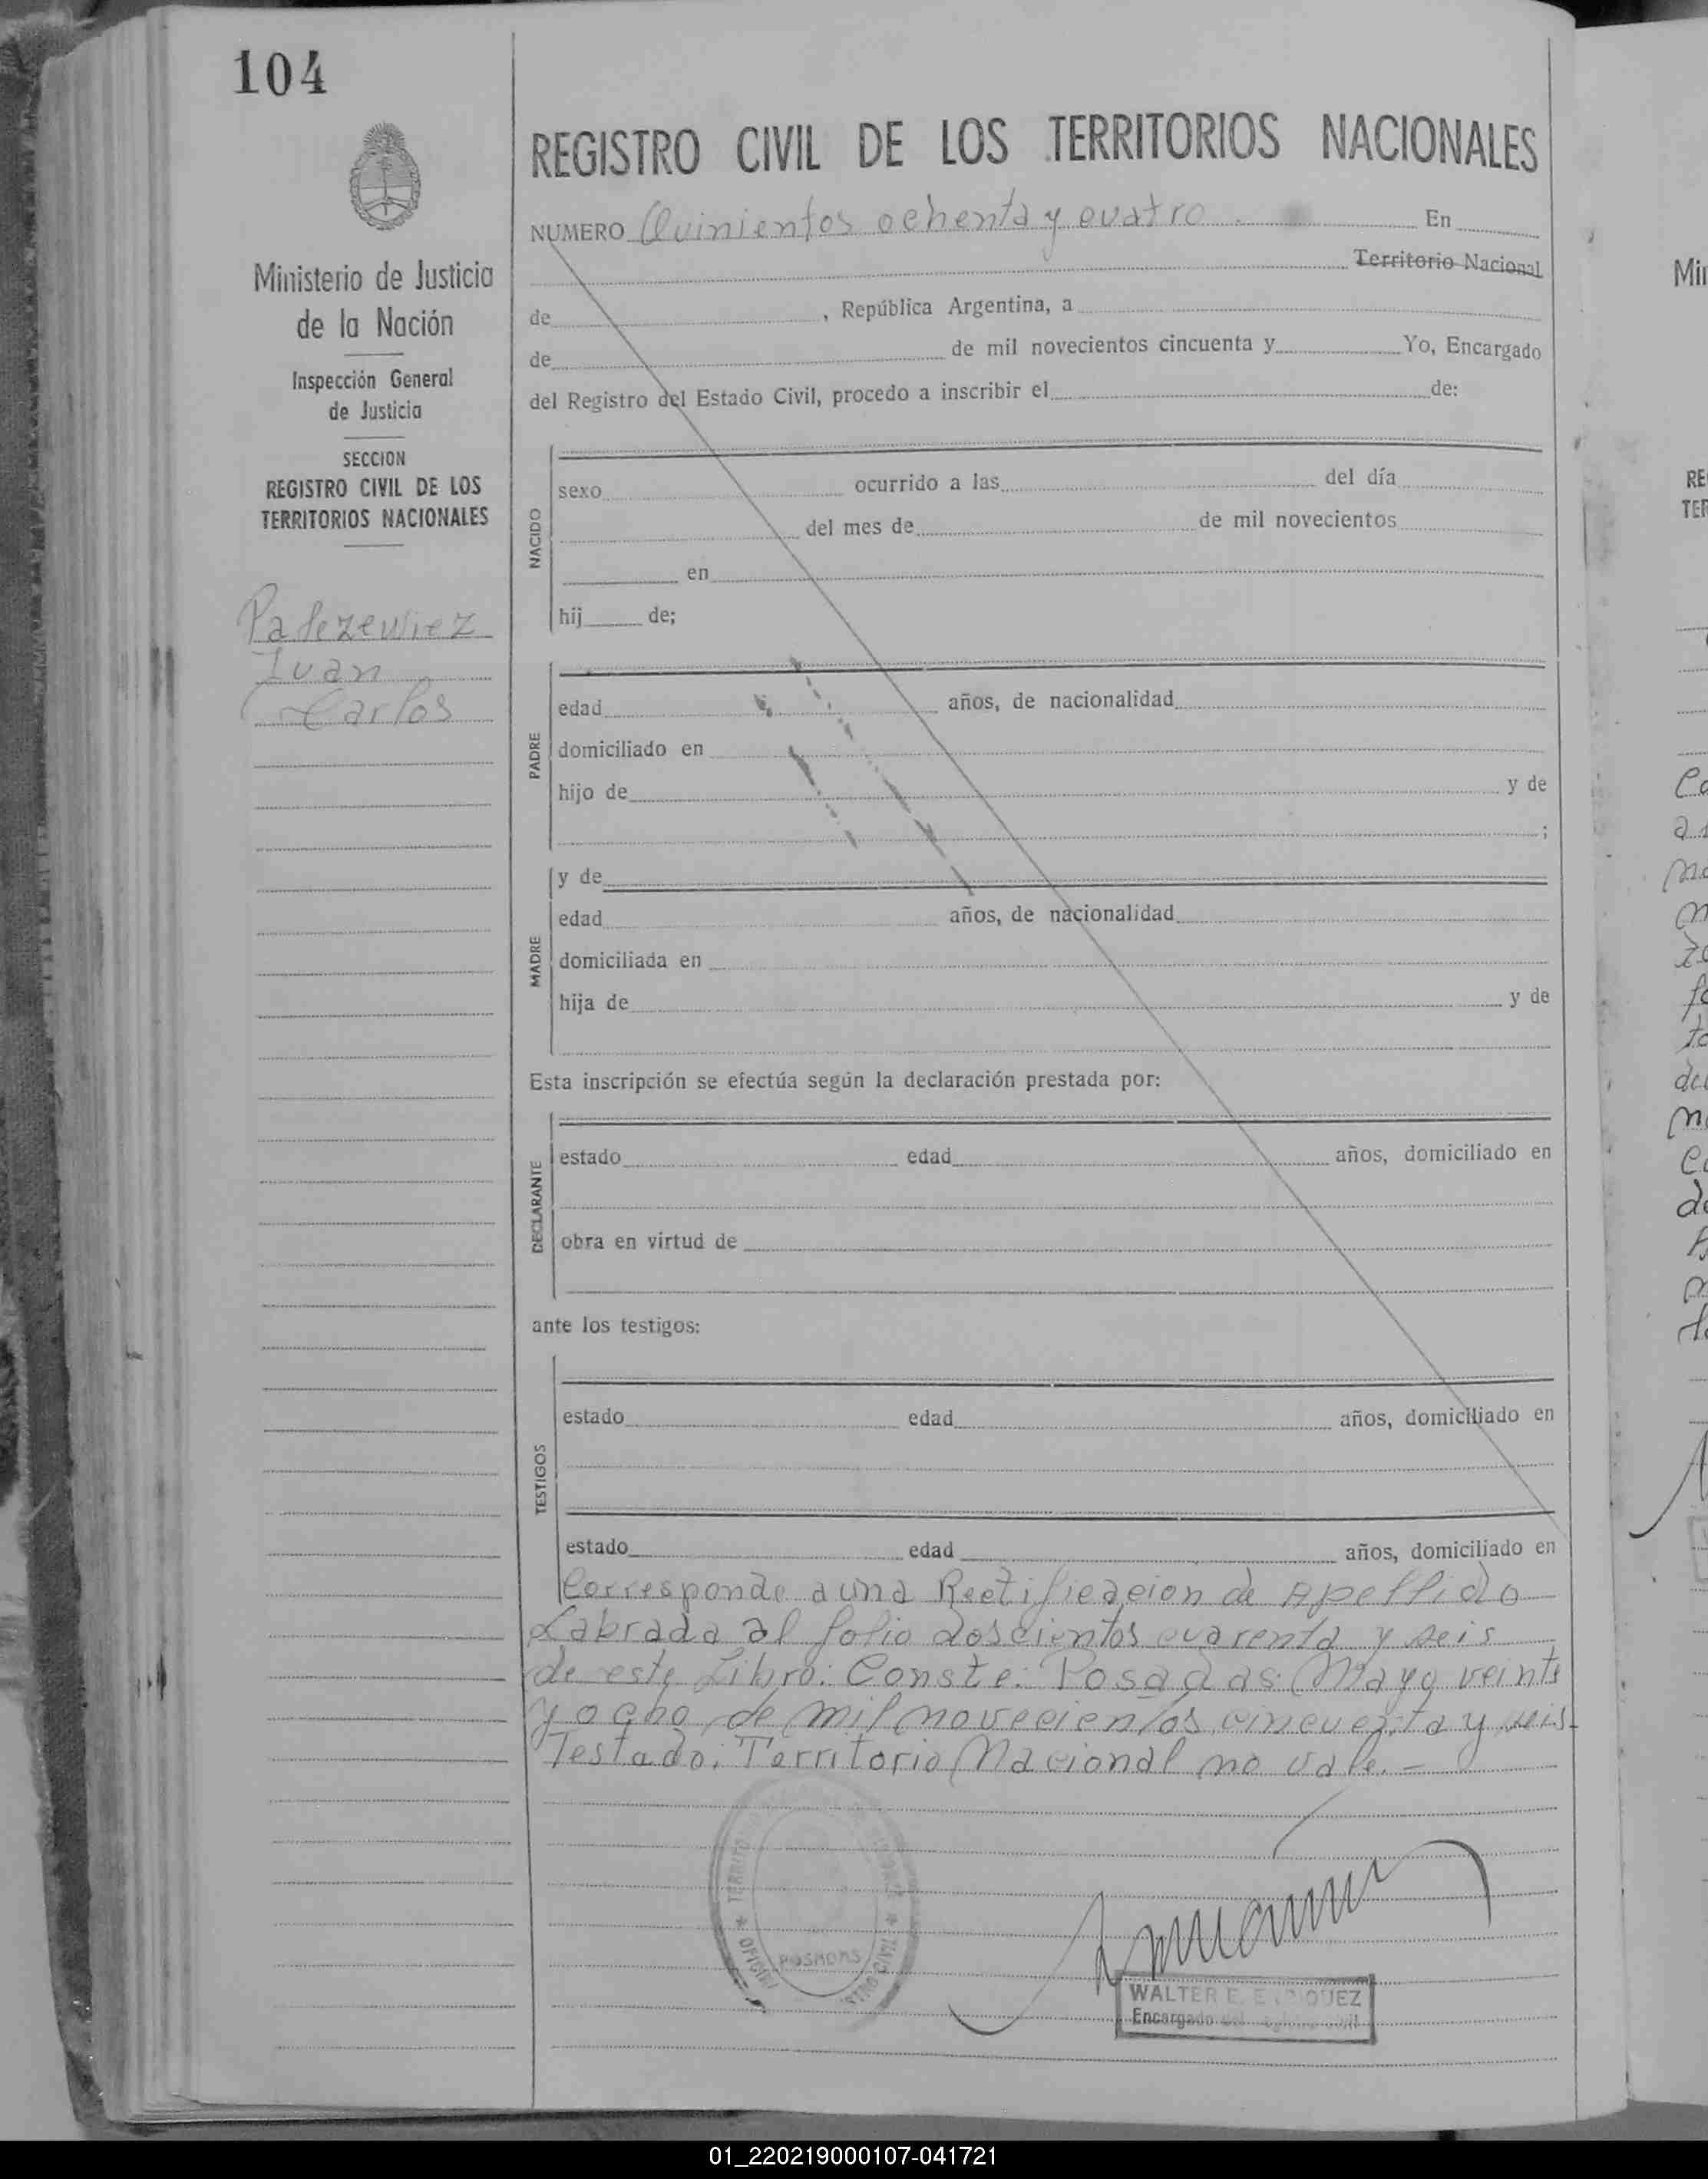 104
REGISTRO CIVIL DE LOS TERRITORIOS NACIONALES
NUMERO Quinientos ochenta y cuatro En
Territorio Nacional
de , República Argentina, a
de de mil novecientos cincuenta y Yo, Encargado
del Registro del Estado Civil, procedo a inscribir el de:
Ministerio de Justicia
de la Nación
Inspección General
de Justicia
SECCION
REGISTRO CIVIL DE LOS
TERRITORIOS NACIONALES
Palczewicz
Juan
Carlos
NACIDO
sexo ocurrido a las del día
del mes de de mil novecientos
en
hij de;
PADRE
edad años, de nacionalidad
domiciliado en
hijo de y de
;
MADRE
y de
edad años, de nacionalidad
domiciliada en
hija de y de
Esta inscripción se efectúa según la declaración prestada por:
DECLARANTE
estado edad años, domiciliado en
obra en virtud de
ante los testigos:
TESTIGOS
estado edad años, domiciliado en
estado edad años, domiciliado en
Corresponde a una Rectificacion de Apellido
Labrada al folio doscientos cuarenta y seis
de este Libro: Conste: Posadas: Mayo veinte
y ocho de mil novecientos cincuenta y seis-
Testado: Territorio Nacional no vale.-
POSADAS
WALTER E. ENRIQUEZ
Encargado del Registro Civil
01_220219000107-041721